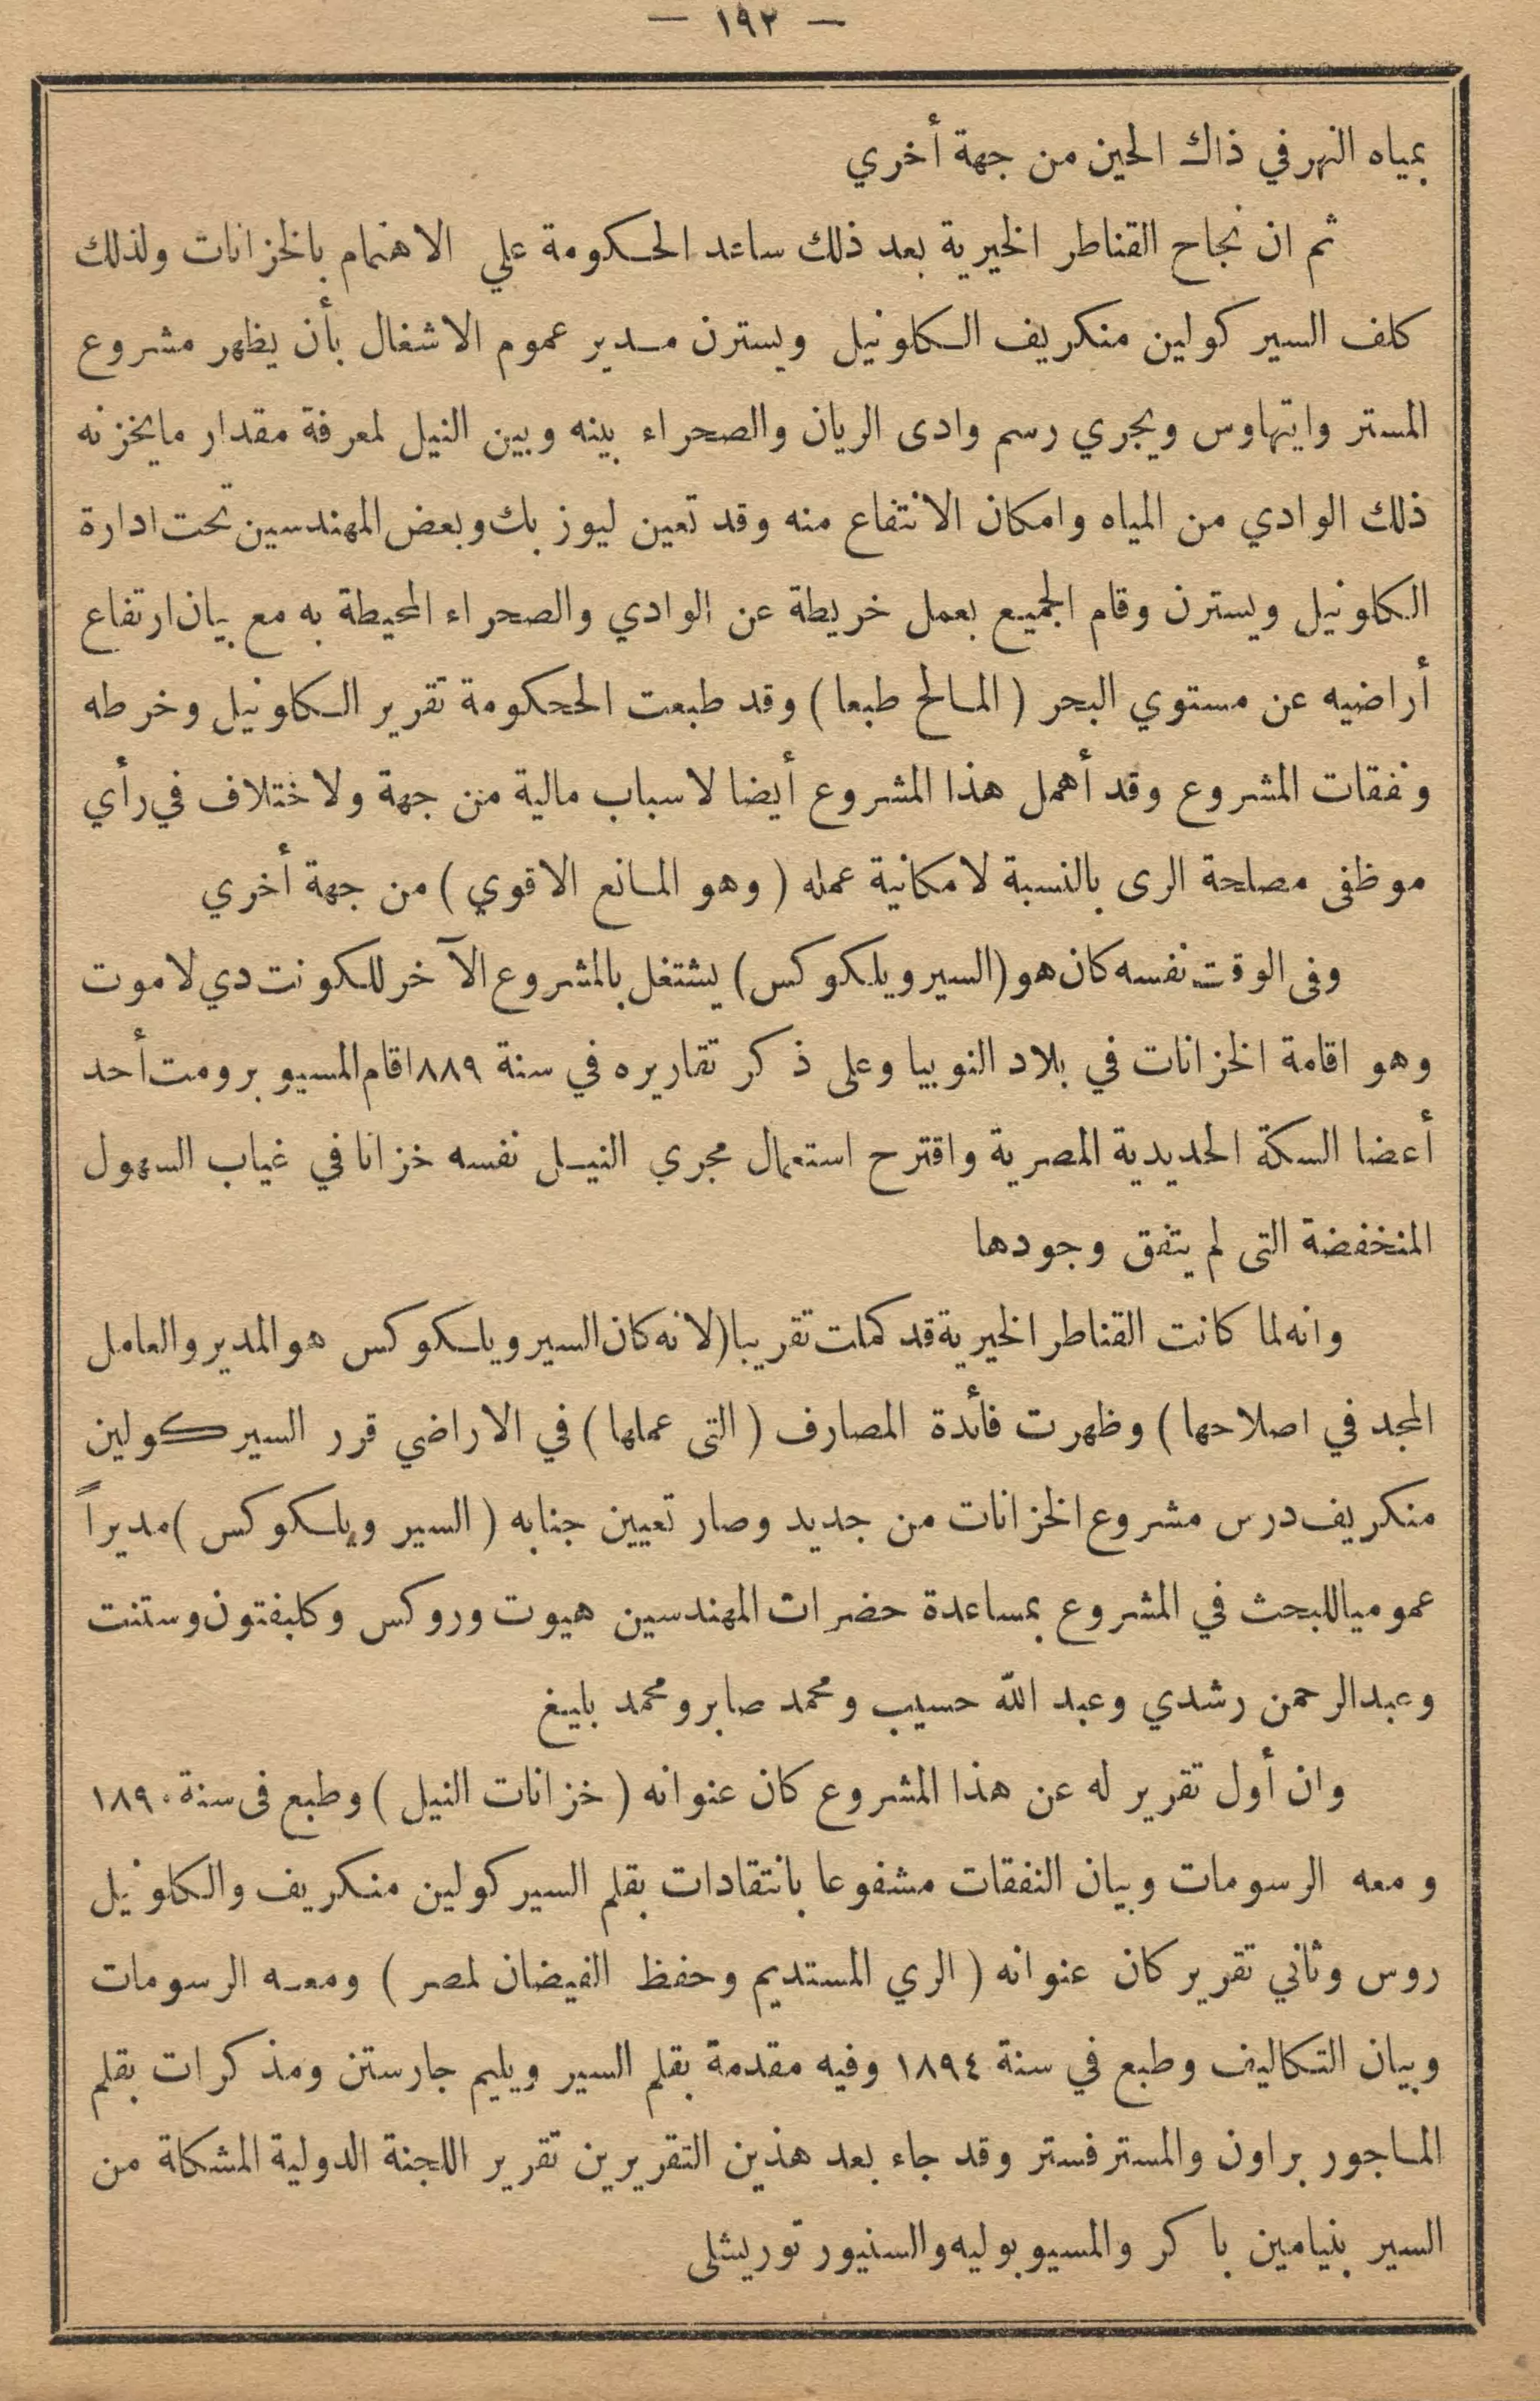 — ١٩٢ —
بمياه النهر في ذاك الحين من جهة أخري
ثم ان نجاح القناطر الخيرية بعد ذلك ساعد الحكومة علي الاهتمام بالخزانات ولذلك
كلف السير كولين منكريف الكلونيل ويسترن مدير عموم الاشغال بأن يظهر مشروع
المستر وايتهاوس ويجري رسم وادى الريان والصحراء بينه وبين النيل لمعرفة مقدار مايخزنه
ذلك الوادي من المياه وامكان الانتفاع منه وقد تعين ليوز بك وبعض المهندسين تحت ادارة
الكلونيل ويسترن وقام الجميع بعمل خريطة عن الوادي والصحراء المحيطة به مع بيان ارتفاع
أراضيه عن مستوي البحر ( المالح طبعا ) وقد طبعت الححكومة تقرير الكلونيل وخرطه
ونفقات المشروع وقد أهمل هذا المشروع أيضا لاسباب مالية من جهة ولاختلاف في رأي
موظفى مصلحة الرى بالنسبة لامكانية عمله ( وهو المانع الاقوي ) من جهة أخري
وفى الوقت نفسه كان هو (السير ويلكوكس) يشتغل بالمشروع الآخر للكونت دي لاموت
وهو اقامة الخزانات في بلاد النوبيا وعلى ذكر تقاريره في سنة ١٨٨٩قام المسيو برومت أحد
أعضا السكة الحديدية المصرية واقترح استعمال مجري النيل نفسه خزانا في غياب السهول
المنخفضة التى لم يتفق وجودها
وانه لما كانت القناطر الخيرية قد كملت تقريبا (لانه كان السير ويلكوكس هو المدير والعامل
المجد في اصلاحها ) وظهرت فأئدة المصارف ( التى عملها ) في الاراضي قرر السير كولين
منكريف درس مشروع الخزانات من جديد وصار تعيين جنابه ( السير ويلكوكس )مديراً
عموميا للبحث في المشروع بمساعدة حضرات المهندسين هيوت وروكس وكليفتون وستنت
وعبدالرحمن رشدي وعبد الله حسيب ومحمد صابر ومحمد بليغ
وان أول تقرير له عن هذا المشروع كان عنوانه ( خزانات النيل ) وطبع فى سنة ١٨٩٠
ومعه الرسومات وبيان النفقات مشفوعا بانتقادات بقلم السير كولين منكريف والكلونيل
روس وثاني تقرير كان عنوانه ( الري المستديم وحفظ الفيضان لمصر ) ومعه الرسومات
وبيان التكاليف وطبع في سنة ١٨٩٤ وفيه مقدمة بقلم السير ويليم جارستن ومذكرات بقلم
الماجور براون والمستر فستر وقد جاء بعد هذين التقريرين تقرير اللجنة الدولية المشكلة من
السير بنيامين باكر والمسيو بوليه والسنيور توريشلى